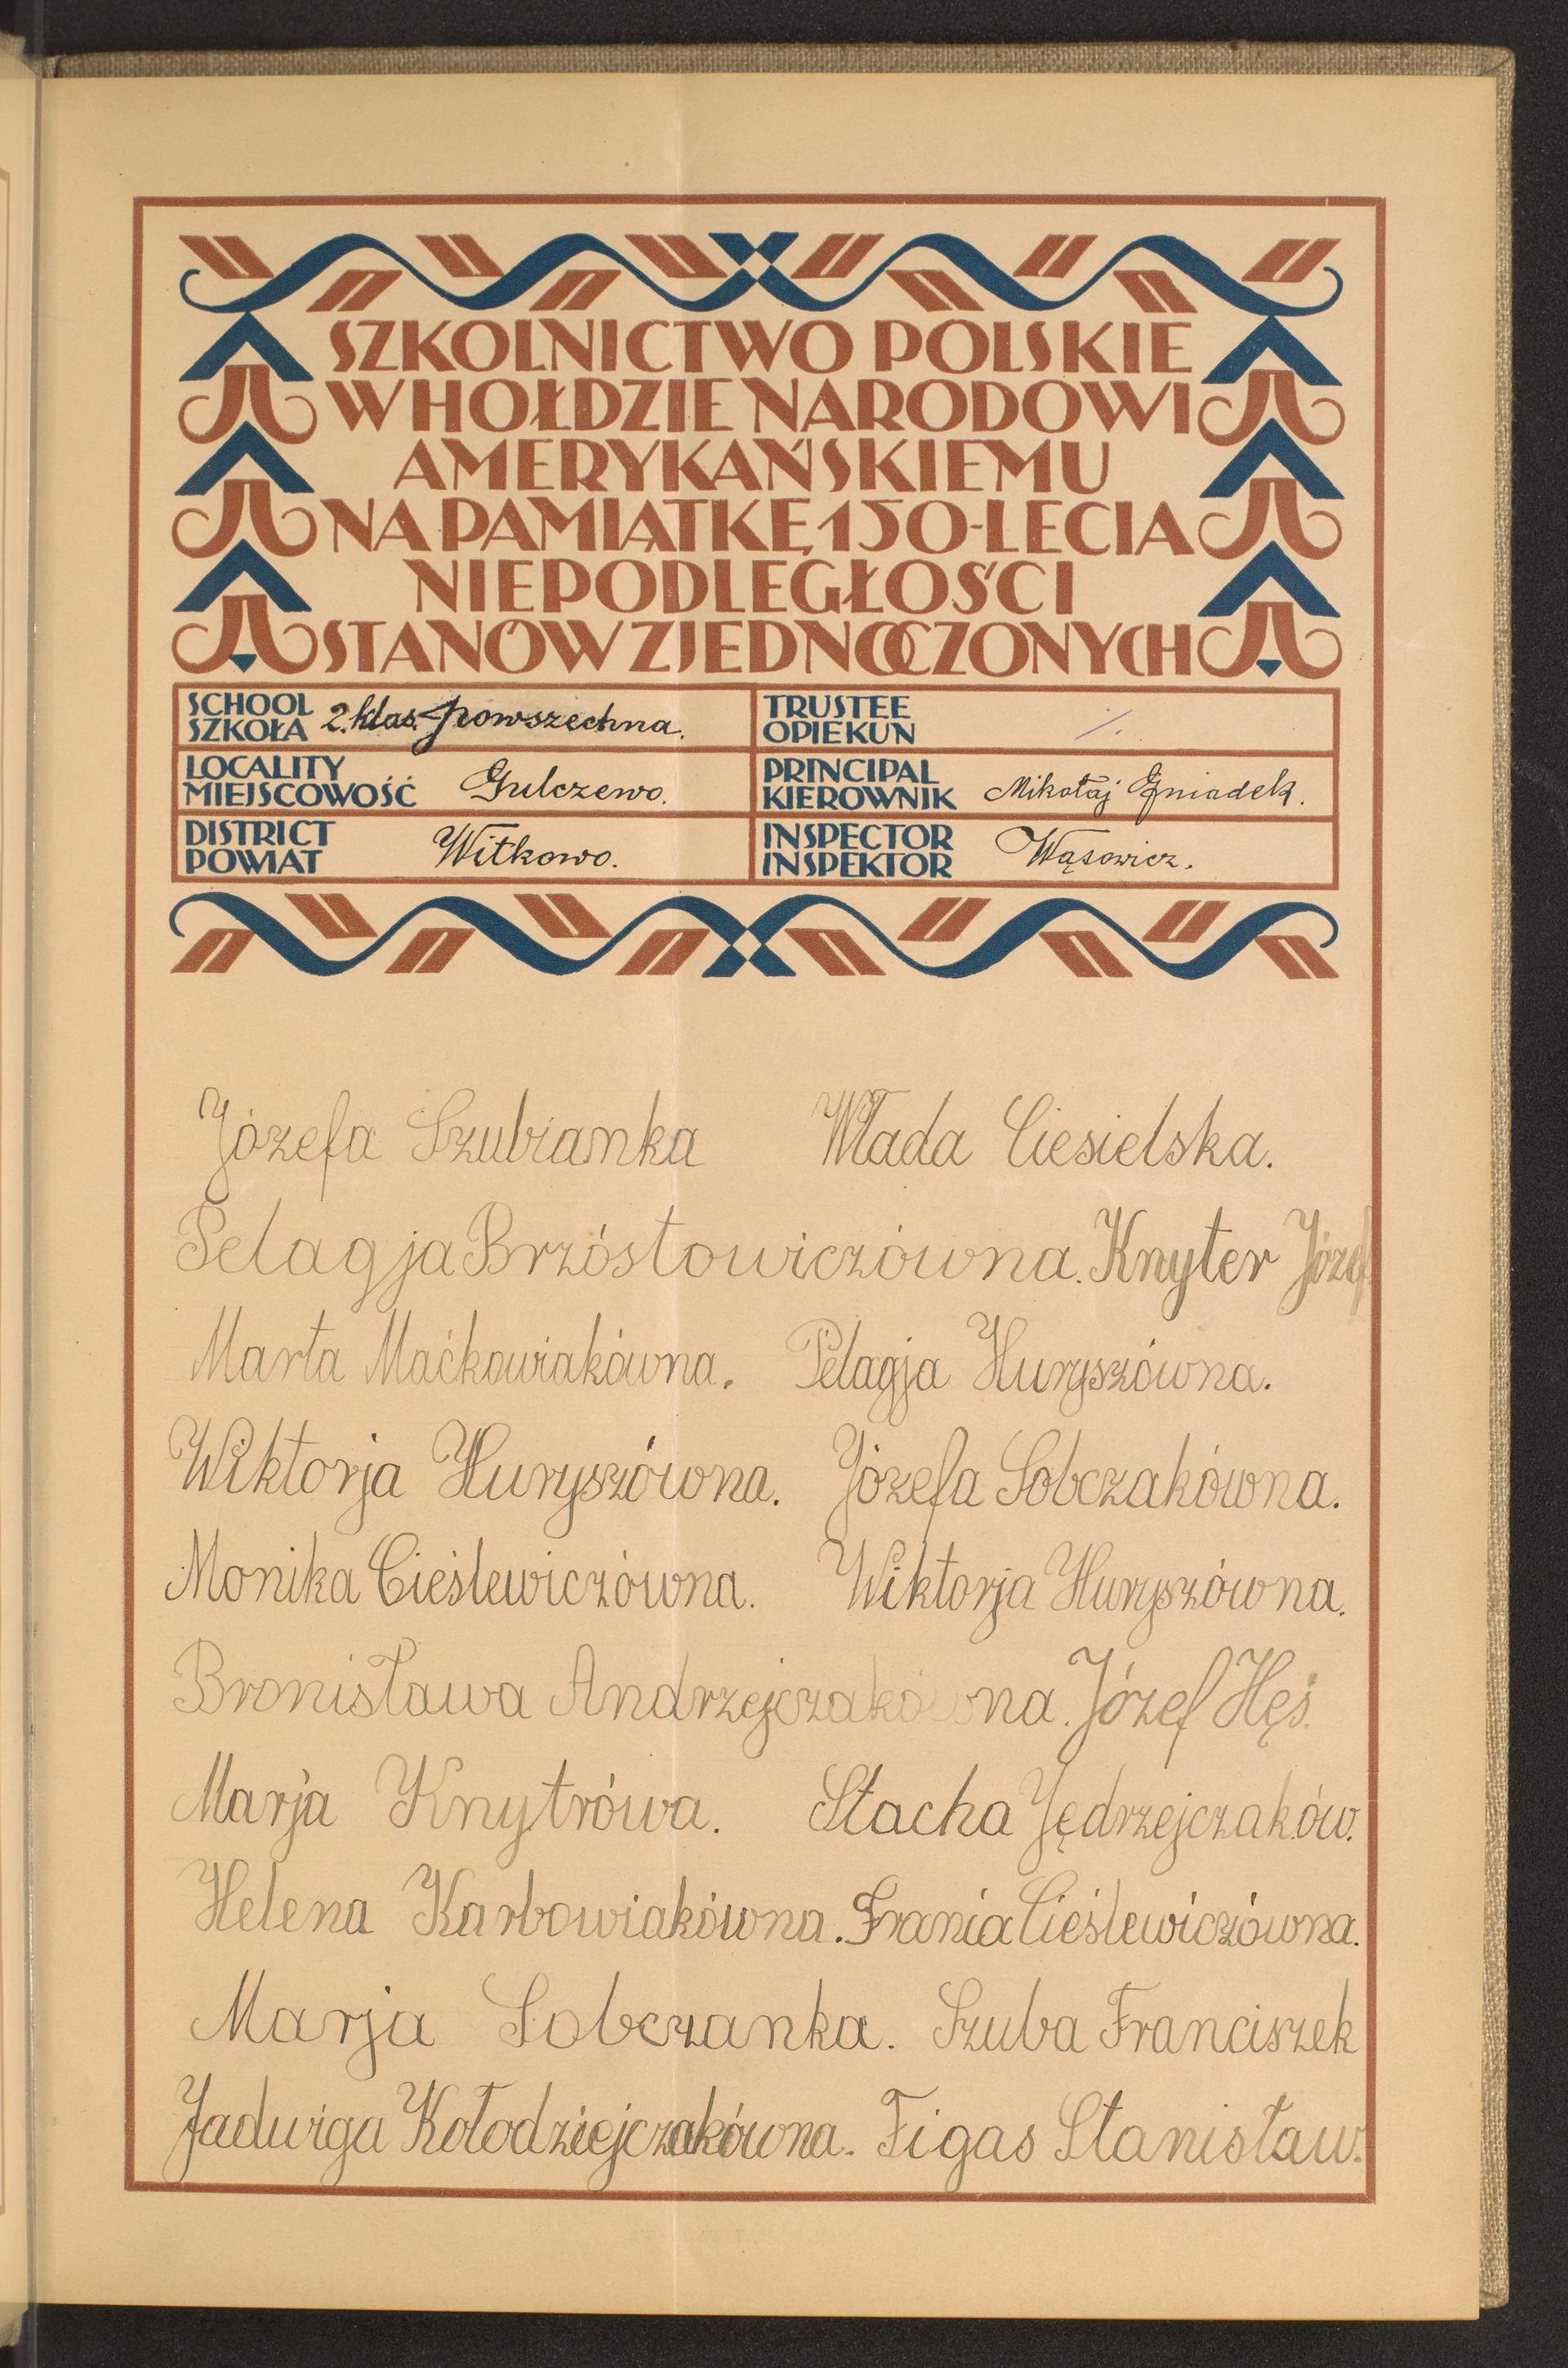 SZKOLNICTWO POLSKIE
W HOŁDZIE NARODOWI
AMERYKAŃSKIEMU
NA PAMIĄTKĘ 150-LECIA
NIEPODLEGŁOŚCI
STANÓW ZJEDNOCZONYCH
SCHOOL
SZKOŁA 2. klas. powszechna.
TRUSTEE
OPIEKUN /.
LOCALITY
MIEJSCOWOŚĆ Gulczewo.
PRINCIPAL
KIEROWNIK Mikołaj Gniadek.
DISTRICT
POWIAT Witkowo.
INSPECTOR
INSPEKTOR Wąsowicz.
Józefa Szubianka Włada Ciesielska.
Pelagja Brzóstowiczówna. Knyter Józef
Marta Maćkowiakówna. Pelagja Huryszówna.
Wiktorja Huryszówna. Józefa Sobczakówna.
Monika Cieślewiczówna. Wiktorja Huryszówna.
Bronisława Andrzejczakówna. Józef Hęś.
Marja Knytrówa. Stacha Jędrzejczaków.
Helena Karbowiakówna. Frania Cieślewiczówna.
Marja Sobczanka. Szuba Franciszek
Jadwiga Kołodziejczakówna. Figas Stanisław.